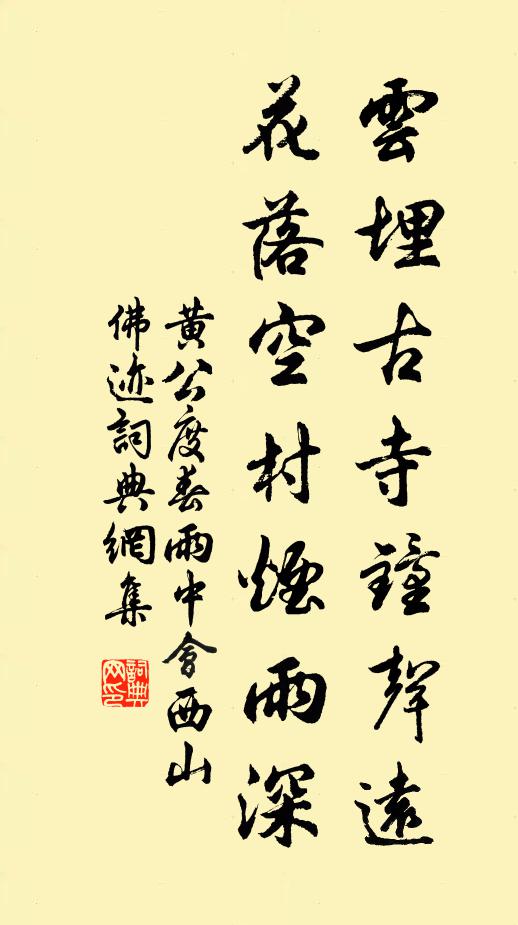 雲埋古寺鐘聲遠
花落空村煙雨深
黃公度春雨中會西山
佛迹詞典網集
詞典網印